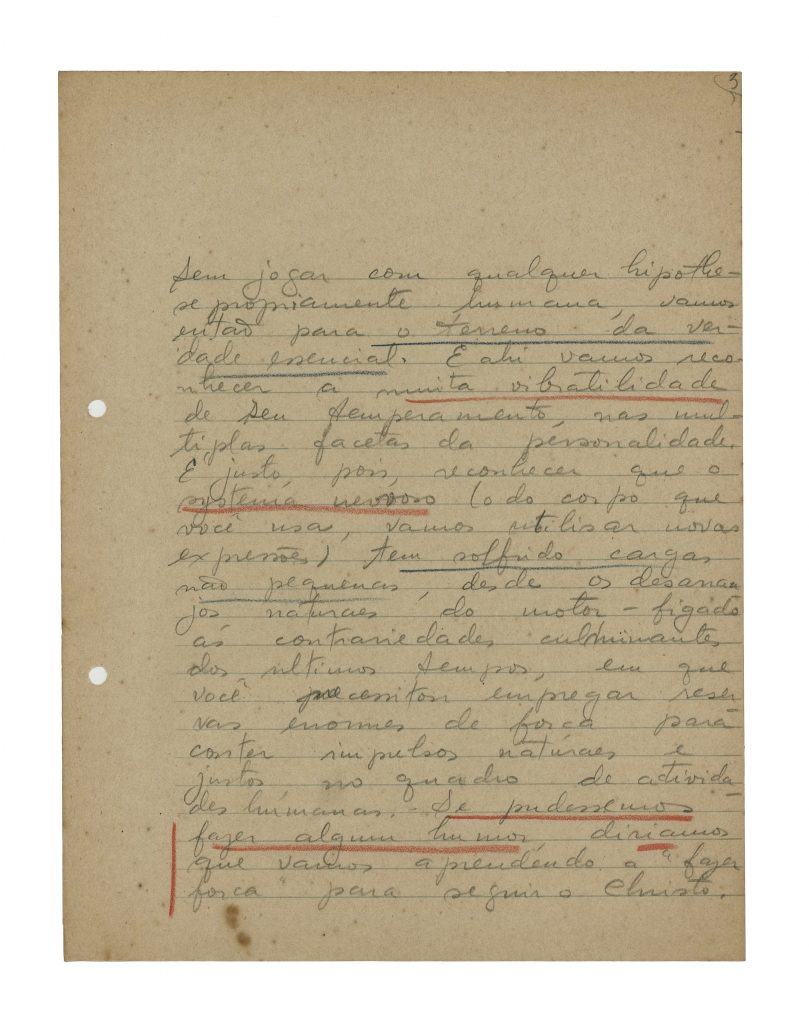 3
Sem jogar com qualquer hipothe-
se propriamente humana, vamos
então para o terreno da ver-
dade essencial. E ahi vamos reco-
nhecer a muita vibratilidade
de seu temperamento, nas mul-
tiplas facetas da personalidade.
É justo, pois, reconhecer que o
systema nervoso (o do corpo que
você usa, vamos utilisar novas
expressões) tem soffrido cargas
não pequenas, desde os desarran
jos naturaes do motor - figado
ás contrariedades culminantes
dos ultimos tempos, em que
você necessitou empregar reser
vas enormes de força para
conter impulsos naturaes e
justos no quadro de activida-
des humanas. - Se pudessemos
fazer algum humor, diriamos
que vamos aprendendo a "fazer
força" para seguir o Christo.